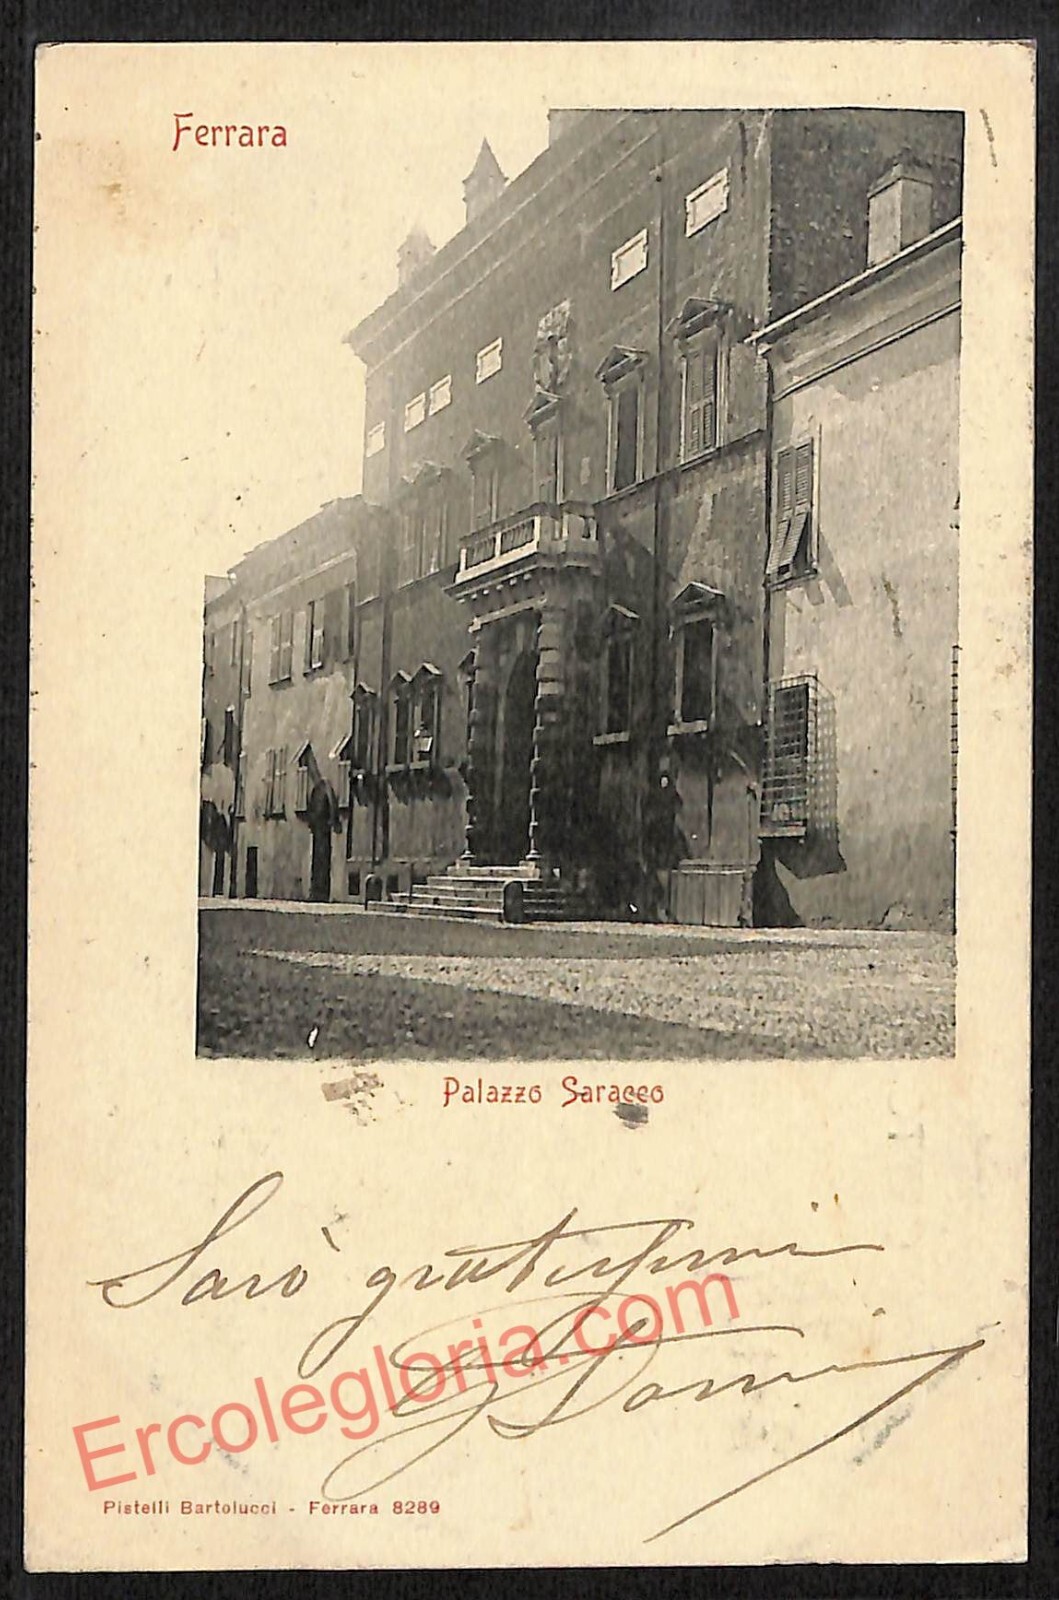 Ferrara
Palazzo Saracco
Sarò
G
Ercolegloria.com
Pistelli Bartolucci - Ferrara 8289